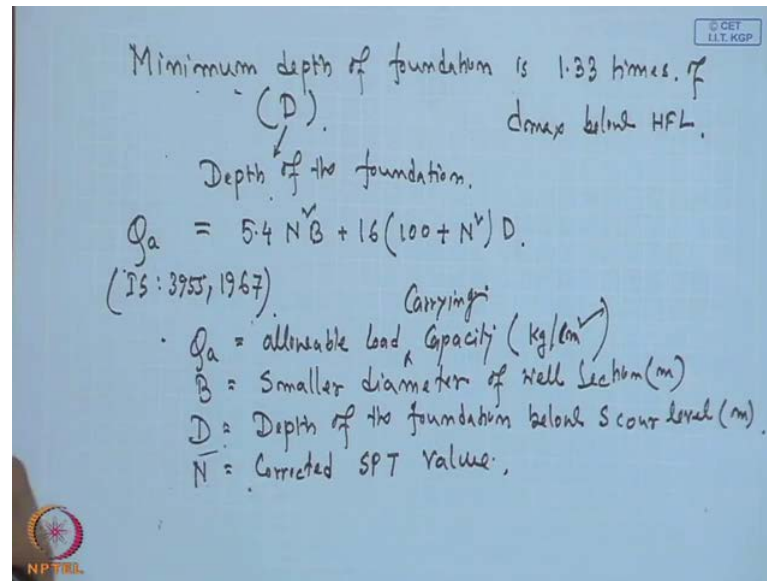 © CET
I.I.T. KGP
Minimum depth of foundation is 1.33 times. of
(D). dmax below HFL.
Depth of the foundation.
Qa = 5.4 N²B + 16 (100 + N²) D.
(IS: 3955, 1967)
Carrying
Qa = allowable load Capacity (kg/cm²)
B = Smaller diameter of well Section (m)
D = Depth of the foundation below Scour level (m).
N = Corrected SPT value.
NPTEL